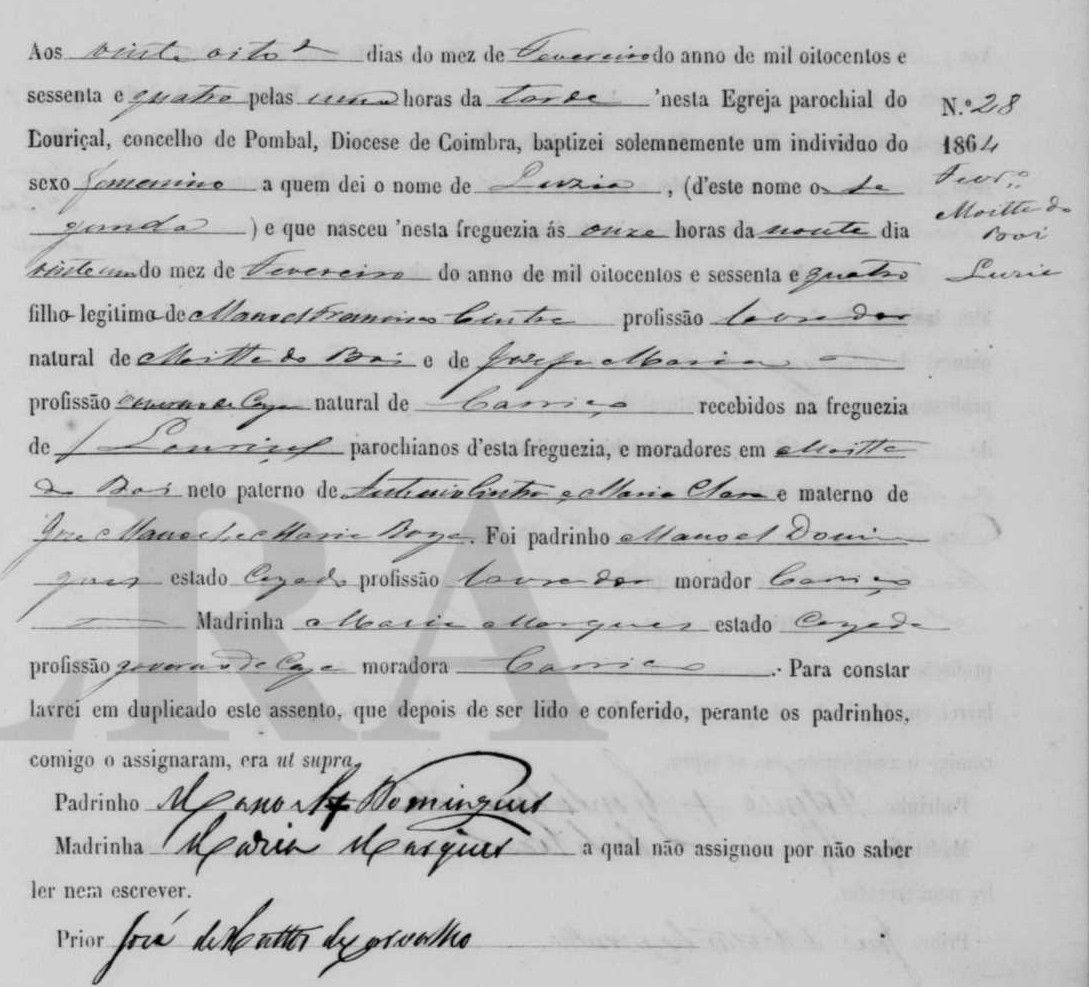 Aos vinte oito dias do mez de Fevereiro do anno de mil oitocentos e
sessenta e quatro pelas uma horas da tarde 'nesta Egreja parochial do
N.º 28
Louriçal, concelho de Pombal, Diocese de Coimbra, baptizei solemnemente um individuo do
1864
sexo femenino a quem dei o nome de Luzia, (d'este nome o Se
Fevr.º
gunda) e que nasceu 'nesta freguezia ás onze horas da noute dia
Moitta do
Boi
vinte um do mez de Fevereiro do anno de mil oitocentos e sessenta e quatro
Luzia
filho legitimo de Manoel Francisco Cintra profissão lavrador
natural de Moitta do Boi e de Josefa Maria
profissão governo de Caza natural de Carriço recebidos na freguezia
de Louriçal parochianos d'esta freguezia, e moradores em Moitta
do Boi neto paterno de Antonio Cintra e Maria Clara e materno de
Jose Manoel e Maria Roza. Foi padrinho Manoel Domin
gues estado Cazado profissão lavrador morador Carriço
Madrinha Maria Marques estado Cazada
profissão governo de Caza moradora Carriço. Para constar
lavrei em duplicado este assento, que depois de ser lido e conferido, perante os padrinhos,
comigo o assignaram, era ut supra.
Padrinho Manoel Domingues
Madrinha Maria Marques a qual não assignou por não saber
ler nem escrever.
Prior José de Mattos de Carvalho
RA